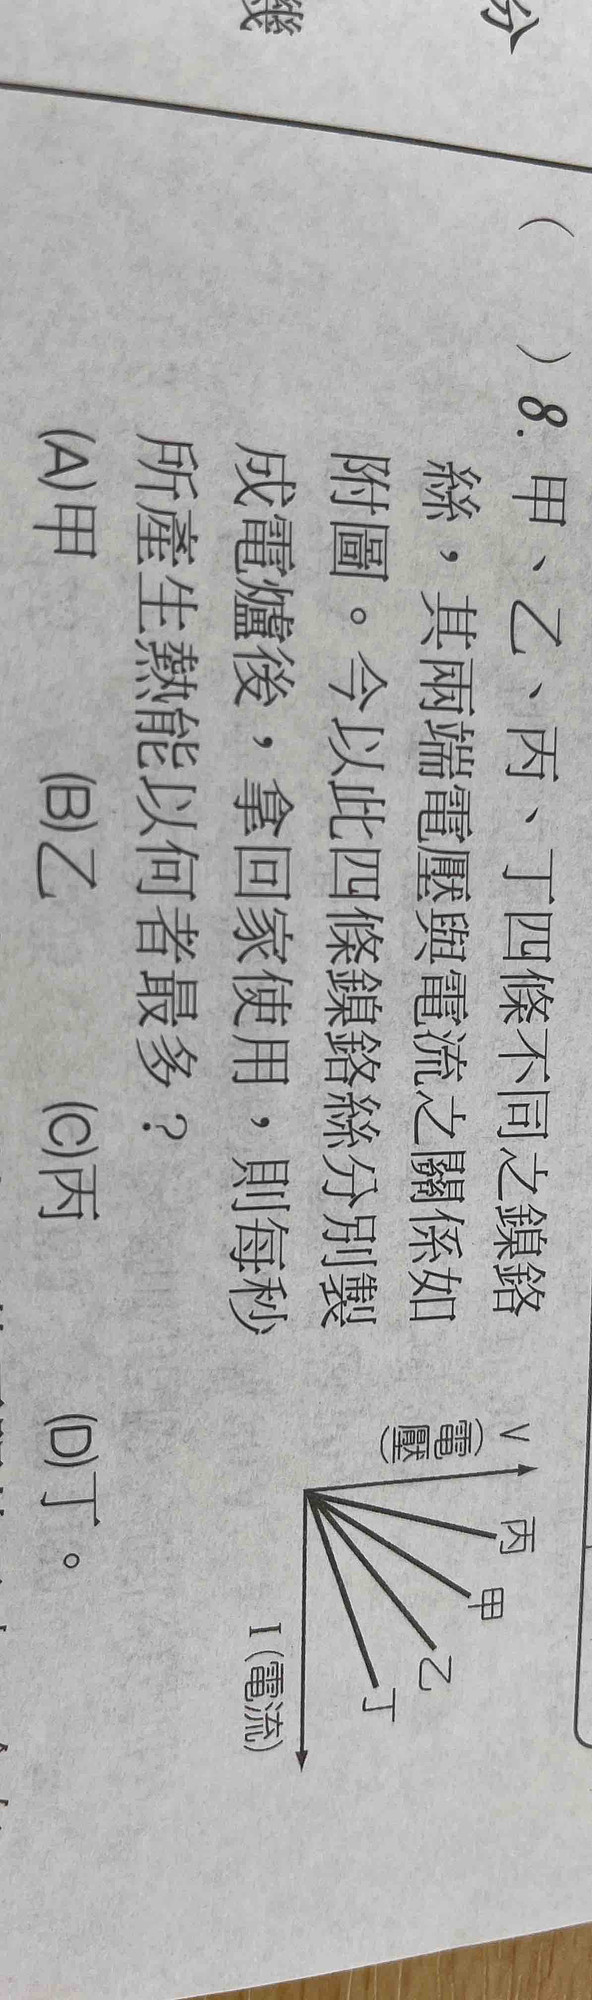 分
幾
(　)8. 甲、乙、丙、丁四條不同之鎳鉻
絲，其兩端電壓與電流之關係如
附圖。今以此四條鎳鉻絲分別製
成電爐後，拿回家使用，則每秒
所產生熱能以何者最多？
(A)甲　(B)乙　(C)丙　(D)丁。
V
(電壓)
丙
甲
乙
丁
I (電流)